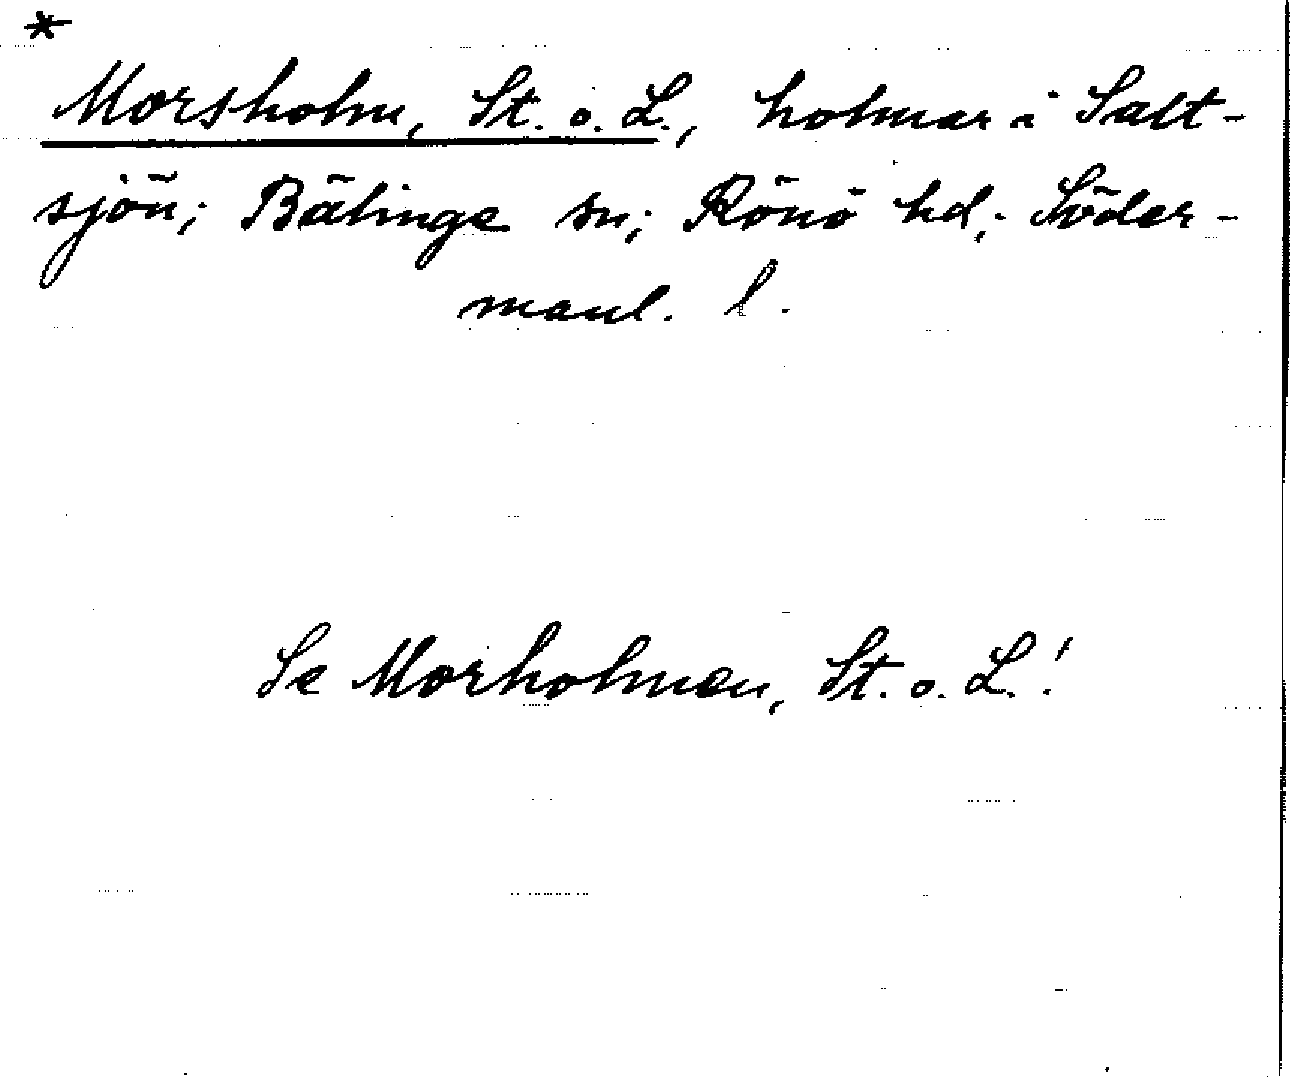 *
Morsholm, St. o. L., holmar i Salt-
sjön; Bälinge sn; Rönö hd; Söder-
manl. l.
Se Morholmen, St. o. L.!